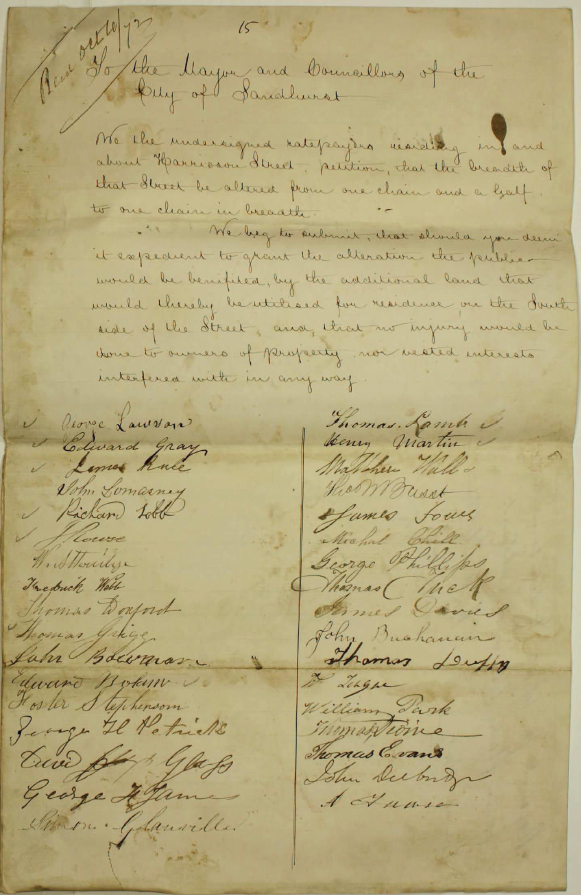 15
Oct 10/72
To the Mayor and Councillors of the
City of Sandhurst
We the undersigned ratepayers residing in and
about Harrison Street, petition, that the breadth of
that Street be altered from one chain and a half
to one chain in breadth.
We beg to submit, that should you deem
it expedient to grant the alteration the public
would be benifited, by the additional land that
would thereby be utilised for residence, on the South
side of the Street, and, that no injury would be
done to owners of property, nor vested interests
interfered with in any way.
George Lawson
Edward Gray
James
John Lomasney
Richard
Frederick Webb
Thomas
Thomas
John Bowman
Edward
Foster Stephenson
George H Patrick
David Glass
George H James
Simon Glanville
Thomas Lamb
Henry Martin
Matthew
James
George Phillips
Thomas Tuck
James Davies
John Buchanan
Thomas Duffy
William Park
Thomas
Thomas Evans
John
A